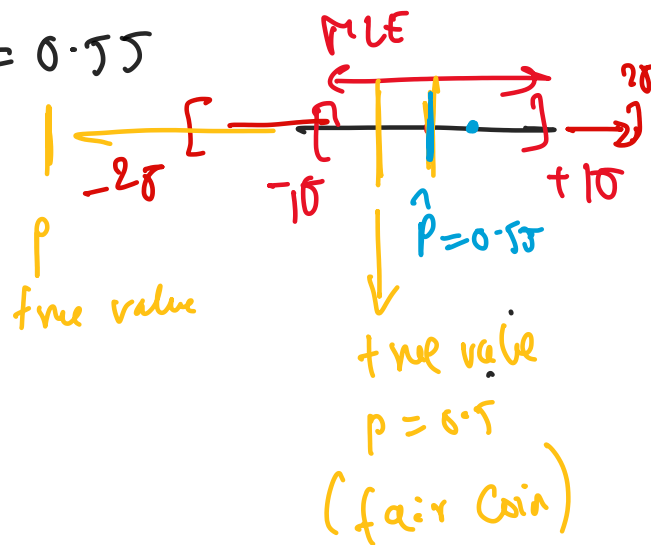 = 0.55
MLE
2σ
-2σ
-1σ
+1σ
p̂ = 0.55
p
true value
true value
p = 0.5
(fair coin)